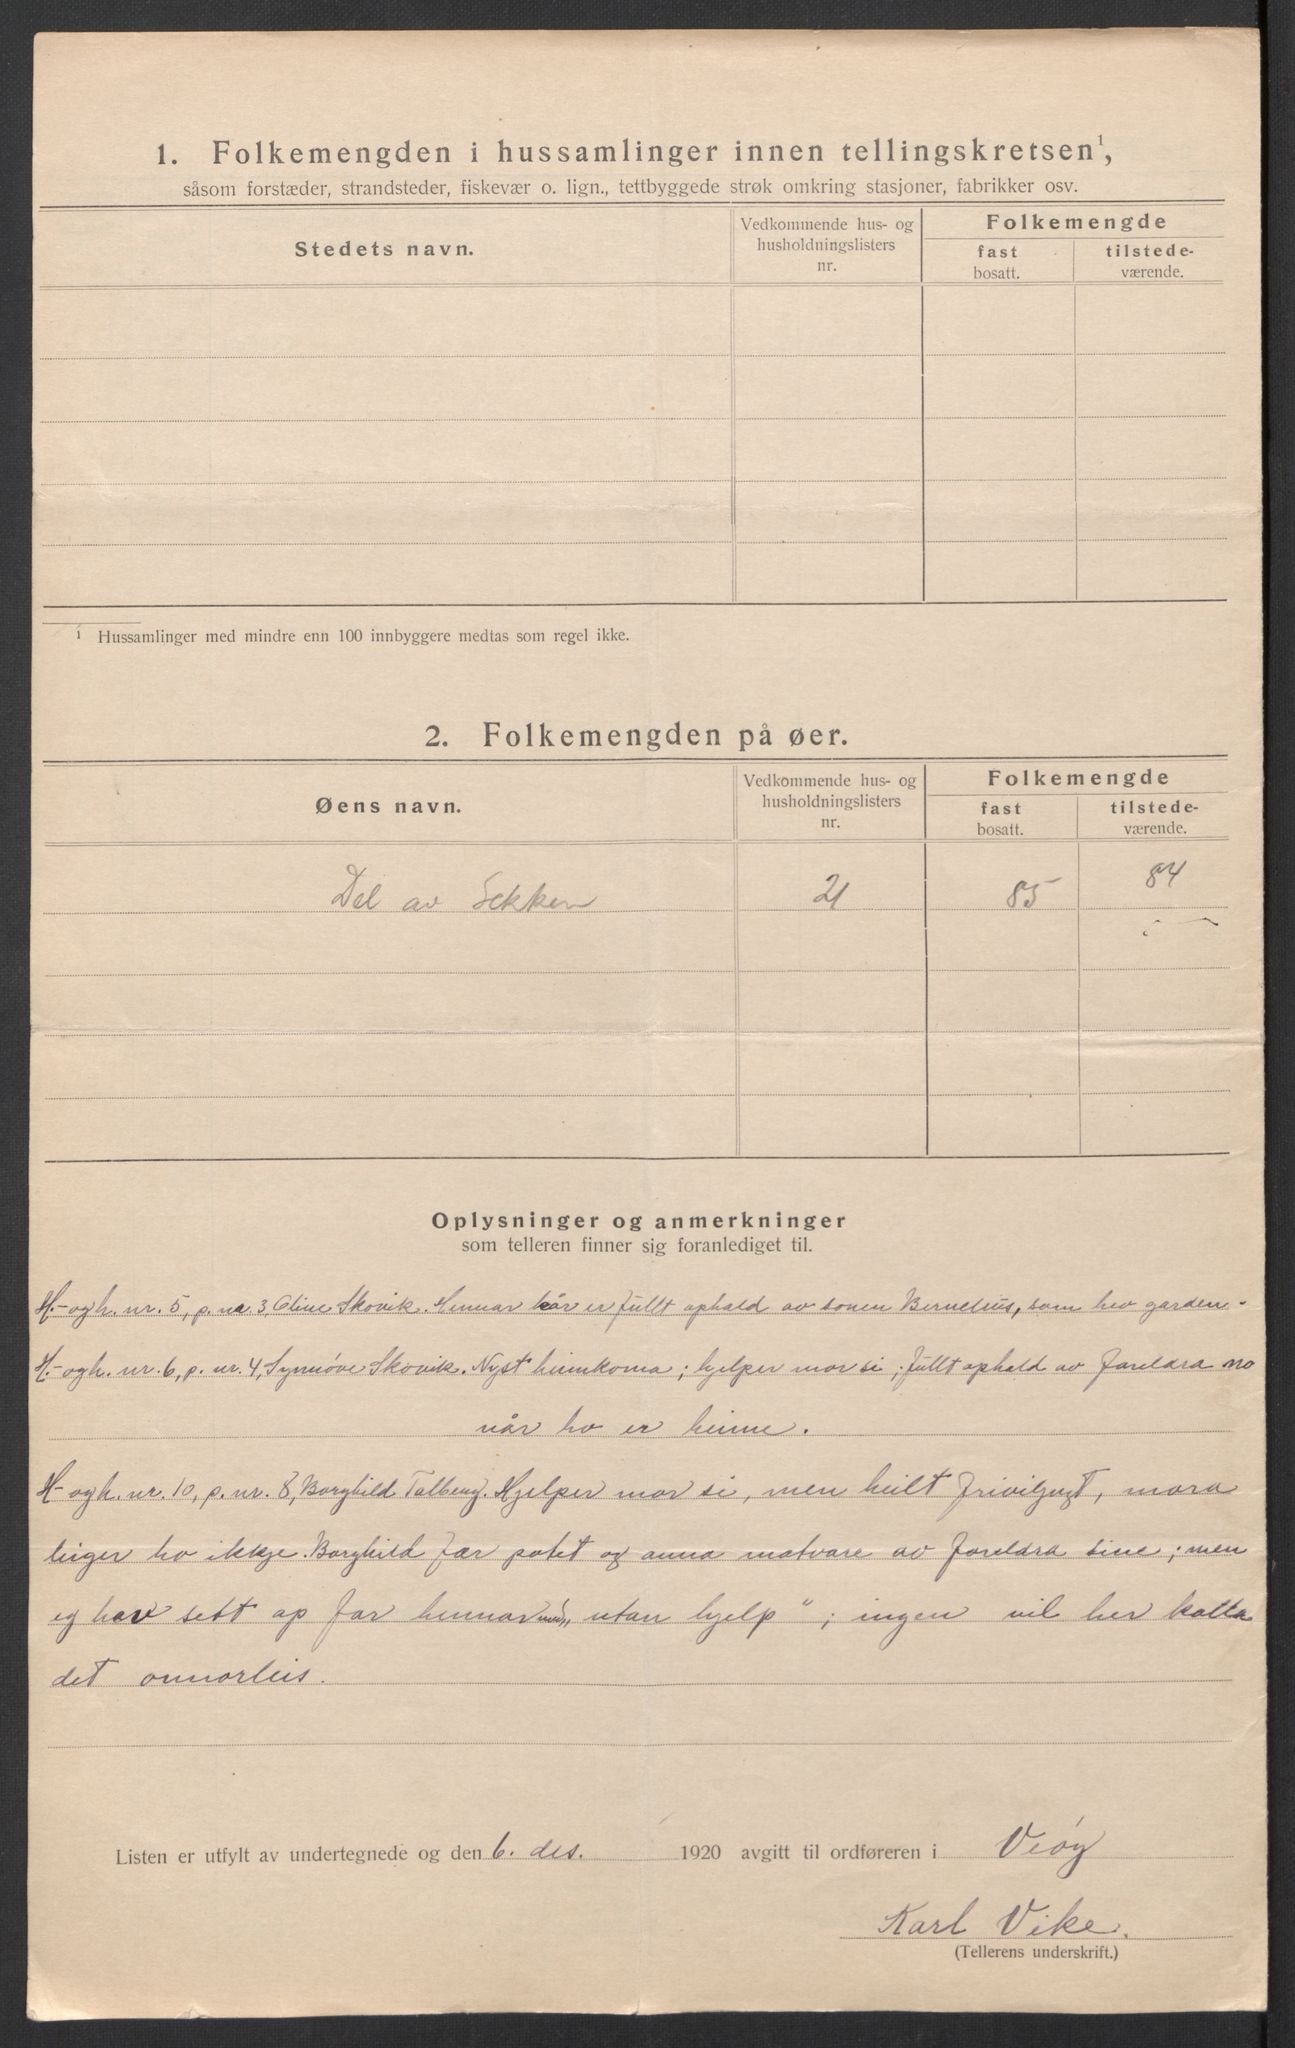 1. Folkemengden i hussamlinger innen tellingskretsen¹,
såsom forstæder, strandsteder, fiskevær o. lign., tettbyggede strøk omkring stasjoner, fabrikker osv.
Stedets navn.
Vedkommende hus- og husholdningslisters nr.
Folkemengde
fast bosatt.
tilstede-værende.
¹ Hussamlinger med mindre enn 100 innbyggere medtas som regel ikke.
2. Folkemengden på øer.
Øens navn.
Vedkommende hus- og husholdningslisters nr.
Folkemengde
fast bosatt.
tilstede-værende.
Del av Sekken 21 85 84
Oplysninger og anmerkninger
som telleren finner sig foranlediget til.
H.- og h. nr. 5, p. nr. 3, Oline Skovik. Hennar kår er fullt ophald av sonen Bernelius, som hev garden.
H.- og h. nr. 6, p. nr. 4, Synnøve Skovik. Nyst heimkoma; hjelper mor si; fullt ophald av foreldra no
når ho er heime.
H- og h. nr. 10, p. nr. 8, Borghild Talberg. Hjelper mor si, men heilt friviljugt, mora
leiger ho ikkje. Borghild fær potet og anna matvare av foreldra sine; men
eg hev sett op far hennar med „utan hjelp"; ingen vil her kalla
det onnorleis.
Listen er utfylt av undertegnede og den 6. des. 1920 avgitt til ordføreren i Veøy
Karl Vike.
(Tellerens underskrift.)